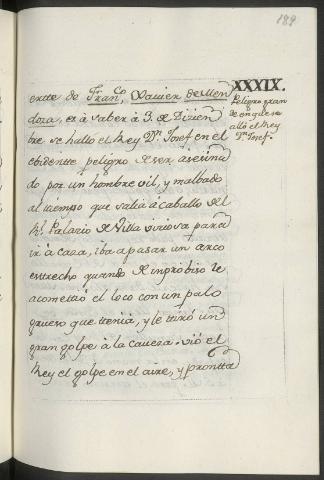 189
XXXIX.
Peligro gran
de en q̃ se
alló el Rey
Dⁿ Josef.
erite do Franᶜᵒ Xavier de Men
doza, es à saber à 3. de Diziem
bre se halló el Rey Dⁿ Josef en el
ebidentte peligro de ser asesina
do por un hombre vil, y malbado
al tiempo que salia à caballo del
Rˡ Palacio de Villa viciosa para
ir à caza, iba a pasar un arco
estrecho quando de improbiso le
acomettió el loco con un palo
grueso que ttenia, y le ttiró un
gran golpe à la caveza. vió el
Rey el golpe en el aire, y prontta